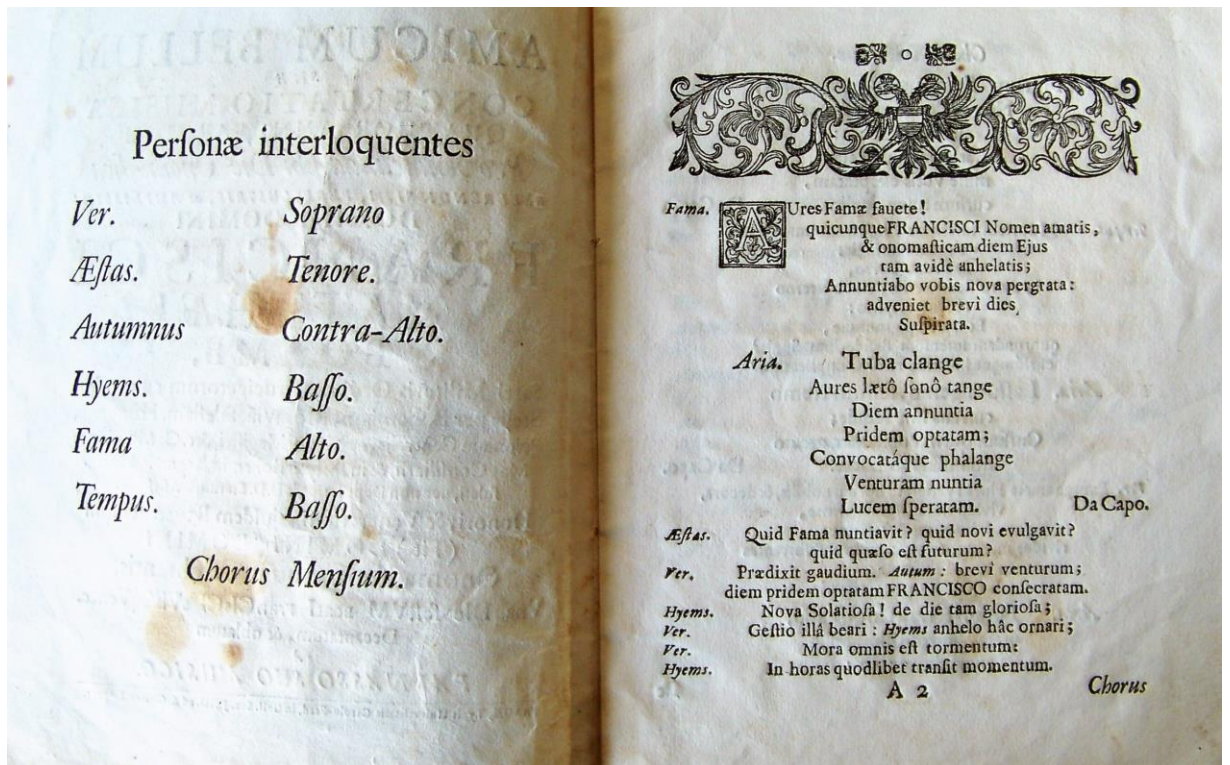 Perſonæ interloquentes
Ver. Soprano
Æſtas. Tenore.
Autumnus Contra-Alto.
Hyems. Baſſo.
Fama Alto.
Tempus. Baſſo.
Chorus Menſium.
Fama. AUres Famæ fauete!
quicunque FRANCISCI Nomen amatis,
& onomaſticam diem Ejus
tam avidè anhelatis;
Annuntiabo vobis nova pergrata:
adveniet brevi dies
Suſpirata.
Aria. Tuba clange
Aures lætô ſonô tange
Diem annuntia
Pridem optatam;
Convocatáque phalange
Venturam nuntia
Lucem ſperatam. Da Capo.
Æſtas. Quid Fama nuntiavit? quid novi evulgavit?
quid quæſo eſt futurum?
Ver. Prædixit gaudium. Autum: brevi venturum;
diem pridem optatam FRANCISCO conſecratam.
Hyems. Nova Solatioſa! de die tam glorioſa;
Ver. Geſtio illâ beari: Hyems anhelo hâc ornari;
Ver. Mora omnis eſt tormentum:
Hyems. In horas quodlibet tranſit momentum.
A 2 Chorus